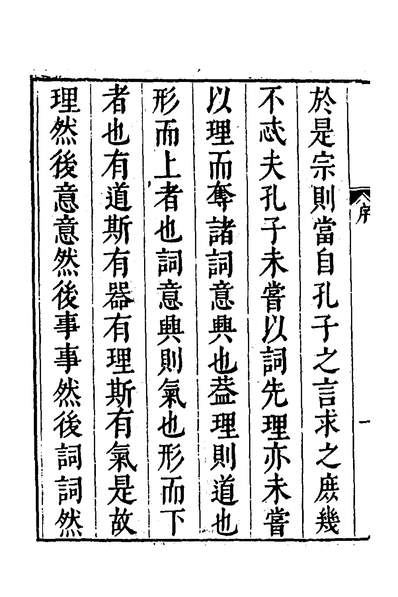 於是宗則當自孔子之言求之庶幾
不忒夫孔子未嘗以詞先理亦未嘗
以理而奪諸詞意興也葢理則道也
形而上者也詞意興則氣也形而下
者也有道斯有器有理斯有氣是故
理然後意意然後事事然後詞詞然
序
一